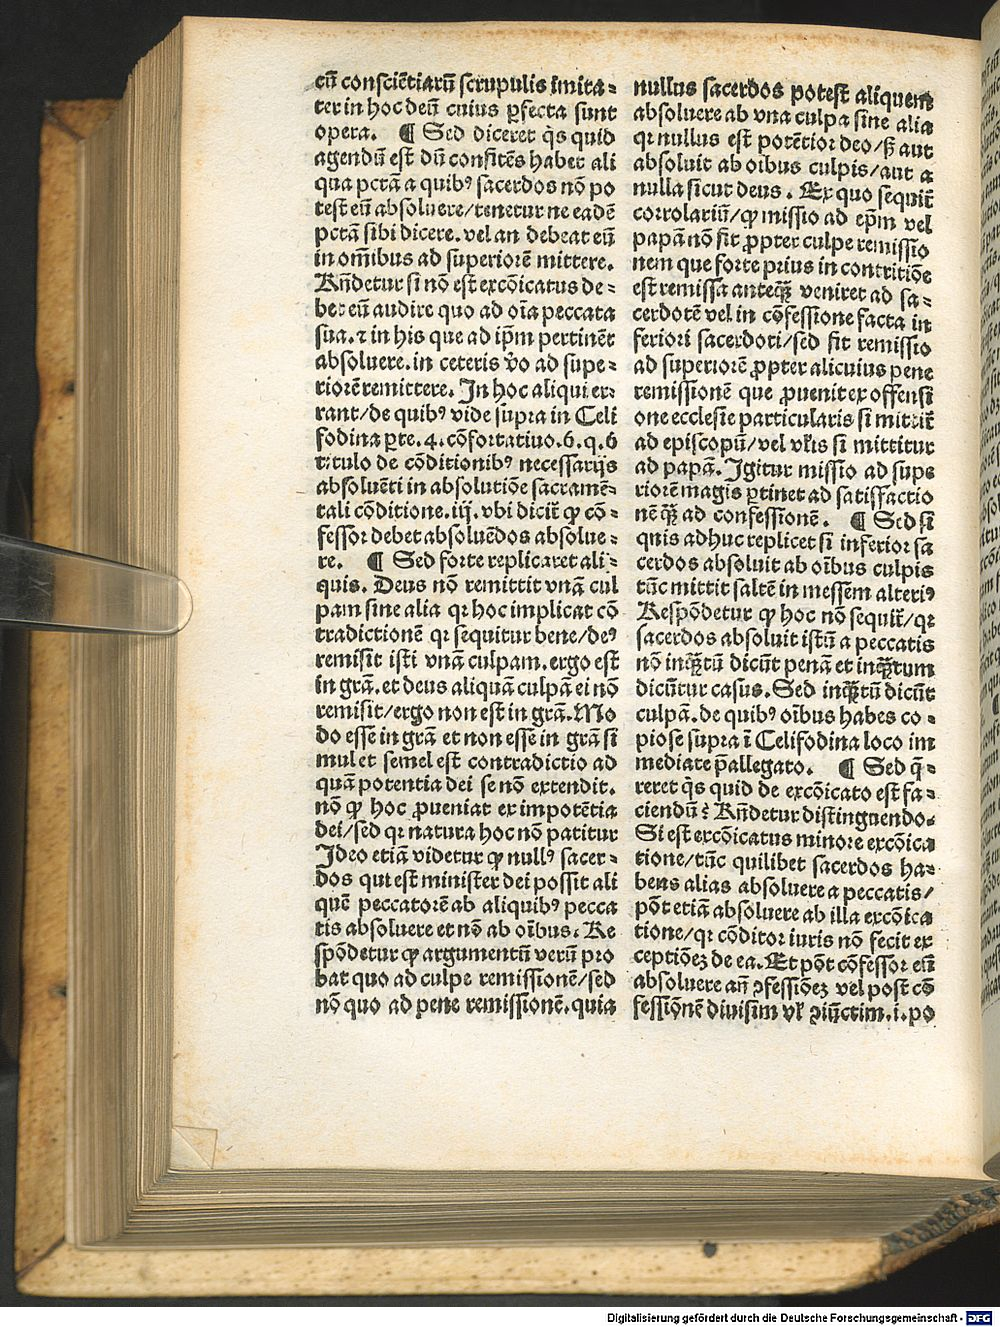 cū consciētiarū scrupulis imita⸗
ter in hoc deū cuius ꝑfecta sunt
opera. ¶ Sed diceret q̄s quid
agendū est dū confitēs habet ali
qua pctā a quibꝰ sacerdos nō po
test eū absoluere/tenetur ne eadē
pctā sibi dicere. vel an debeat eū
in om̄ibus ad superiorē mittere.
Rn̄detur si nō est excōicatus de⸗
bet eū audire quo ad oīa peccata
sua. ⁊ in his que ad ip̄m pertinēt
absoluere. in ceteris v̄o ad supe⸗
riorē remittere. In hoc aliqui er⸗
rant/de quibꝰ vide supra in Celi
fodina ꝑte. 4. cōfortatiuo. 6. q. 6
titulo de cōditionibꝰ necessarijs
absoluēti in absolutiōe sacramē⸗
tali cōditione. iij. vbi dicit̄ ꝙ cō⸗
fessor debet absoluēdos absolue⸗
re. ¶ Sed forte replicaret ali⸗
quis. Deus nō remittit vnā cul
pam sine alia qꝛ hoc implicat cō
tradictionē qꝛ sequitur bene/deꝰ
remisit isti vnā culpam. ergo est
in grā. et deus aliquā culpā ei nō
remisit/ergo non est in grā. Mo
do esse in grā et non esse in grā si
mul et semel est contradictio ad
quā potentia dei se nō extendit.
nō ꝙ hoc ꝓueniat ex impotētia
dei/sed qꝛ natura hoc nō patitur
Ideo etiā videtur ꝙ nullꝰ sacer⸗
dos qui est minister dei possit ali
quē peccatorē ab aliquibꝰ pecca
tis absoluere et nō ab oībus. Re
spōdetur ꝙ argumentū verū pro
bat quo ad culpe remissionē/sed
nō quo ad pene remissionē. quia
nullus sacerdos potest aliquem
absoluere ab vna culpa sine alia
qꝛ nullus est potētior deo/ꝫ aut
absoluit ab oībus culpis/aut a
nulla sicut deus. Ex quo sequit̄
corrolariū/ꝙ missio ad ep̄m vel
papā nō fit ꝓpter culpe remissio
nem que forte prius in contritiōe
est remissa anteꝙ̄ veniret ad sa⸗
cerdotē vel in cōfessione facta in
feriori sacerdoti/sed fit remissio
ad superiorē ꝓpter alicuius pene
remissionē que ꝓuenit ex offensi
one ecclesie particularis si mittit̄
ad episcopū/vel vl̄is si mittitur
ad papā. Igitur missio ad supe
riorē magis ꝑtinet ad satisfactio
nē ꝙ̄ ad confessionē. ¶ Sed si
quis adhuc replicet si inferior sa
cerdos absoluit ab oībus culpis
tūc mittit saltē in messem alteriꝰ
Respōdetur ꝙ hoc nō sequit̄/qꝛ
sacerdos absoluit istū a peccatis
nō inꝙ̄tū dicūt penā et inꝙ̄tum
dicūtur casus. Sed inꝙ̄tū dicūt
culpā. de quibꝰ oībus habes co⸗
piose supra ī Celifodina loco im
mediate p̄allegato. ¶ Sed q̄⸗
reret q̄s quid de excōicato est fa⸗
ciendū? Rn̄detur distinguendo.
Si est excōicatus minore excōica
tione/tūc quilibet sacerdos ha⸗
bens alias absoluere a peccatis/
pōt etiā absoluere ab illa excōica
tione/qꝛ cōditor iuris nō fecit ex
ceptiōeꝫ de ea. Et pōt cōfessor eū
absoluere an̄ ꝯfessiōeꝫ vel post cō
fessiōnē diuisim vl̓ ꝯiūctim. i. po
Digitalisierung gefördert durch die Deutsche Forschungsgemeinschaft - DFG